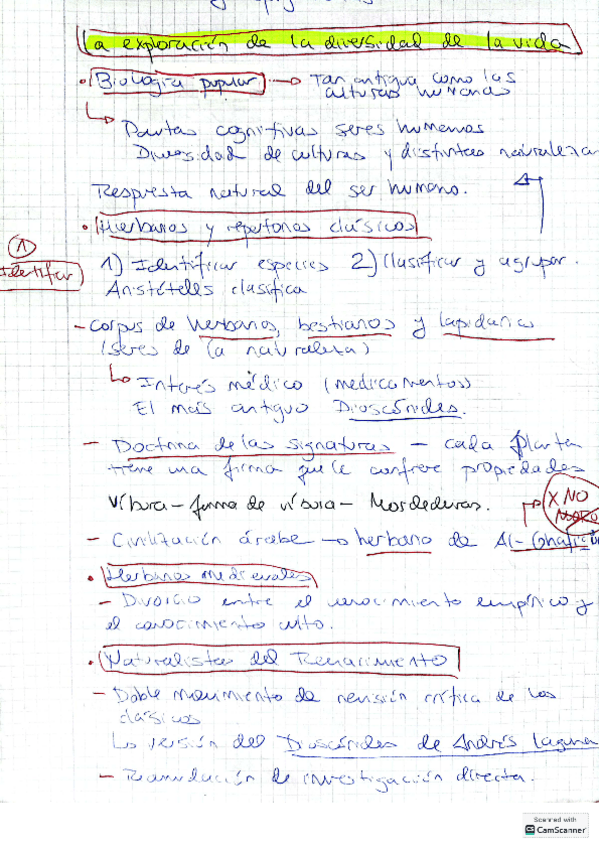 La exploración de la diversidad de la vida
• Biología popular → Tan antigua como las
culturas humanas
↳ Pautas cognitivas seres humanos
Diversidad de culturas y distintas naturaleza
Respuesta natural del ser humano.
• Herbarios y repertorios clásicos
① Identificar
1) Identificar especies 2) Clasificar y agrupar.
Aristóteles clasifica
- Corpus de herbarios, bestiarios y lapidarios
(seres de la naturaleza)
↳ Interés médico (medicamentos)
El más antiguo Dioscórides.
- Doctrina de las signaturas - cada planta
tiene una firma que le confiere propiedades
Víbora - forma de víbora - Mordeduras.
x NO
- Civilización árabe → herbario de Al-Ghafiq
• Herbarios medievales
- Divorcio entre el conocimiento empírico y
el conocimiento culto.
• Naturalistas del Renacimiento
- Doble movimiento de revisión crítica de los
clásicos
La versión del Dioscórides de Andrés Laguna
- Reanudación de investigación directa.
Scanned with
CamScanner